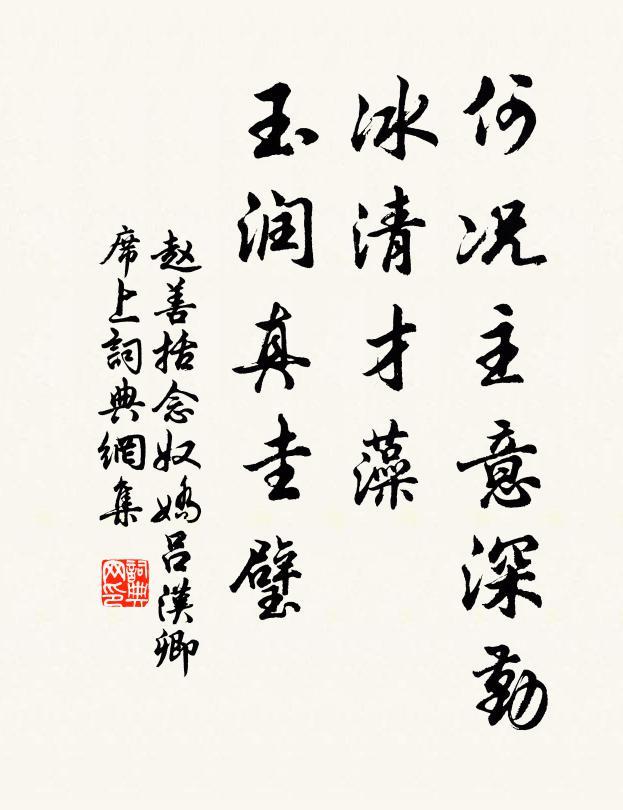 何况主意深勤
冰清才藻
玉润真圭璧
赵善括念奴嬌吕漢卿
席上詞典網集
詞典
网印